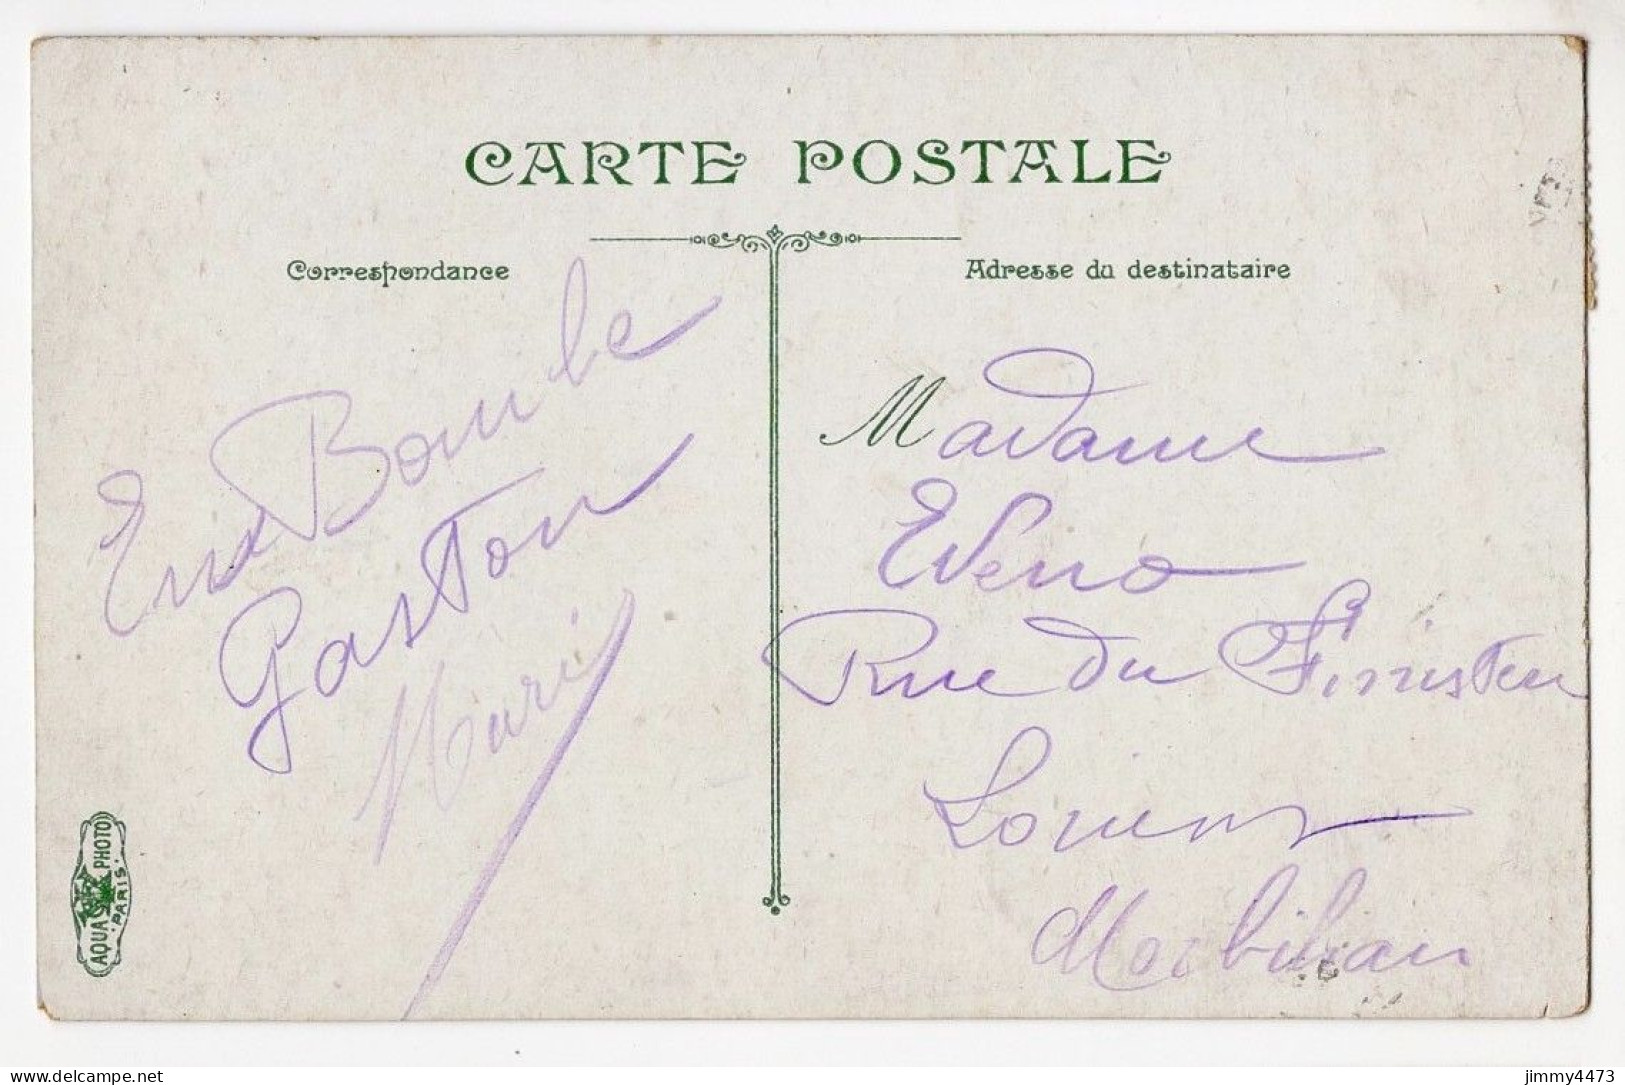 CARTE POSTALE
Correspondance
Adresse du destinataire
Bombe
Gaston
Marie
Madame
Eveno
Rue du Finisten
Lorient
Morbihan
AQUA PHOTO
PARIS
delcampe.net
jimmy4473